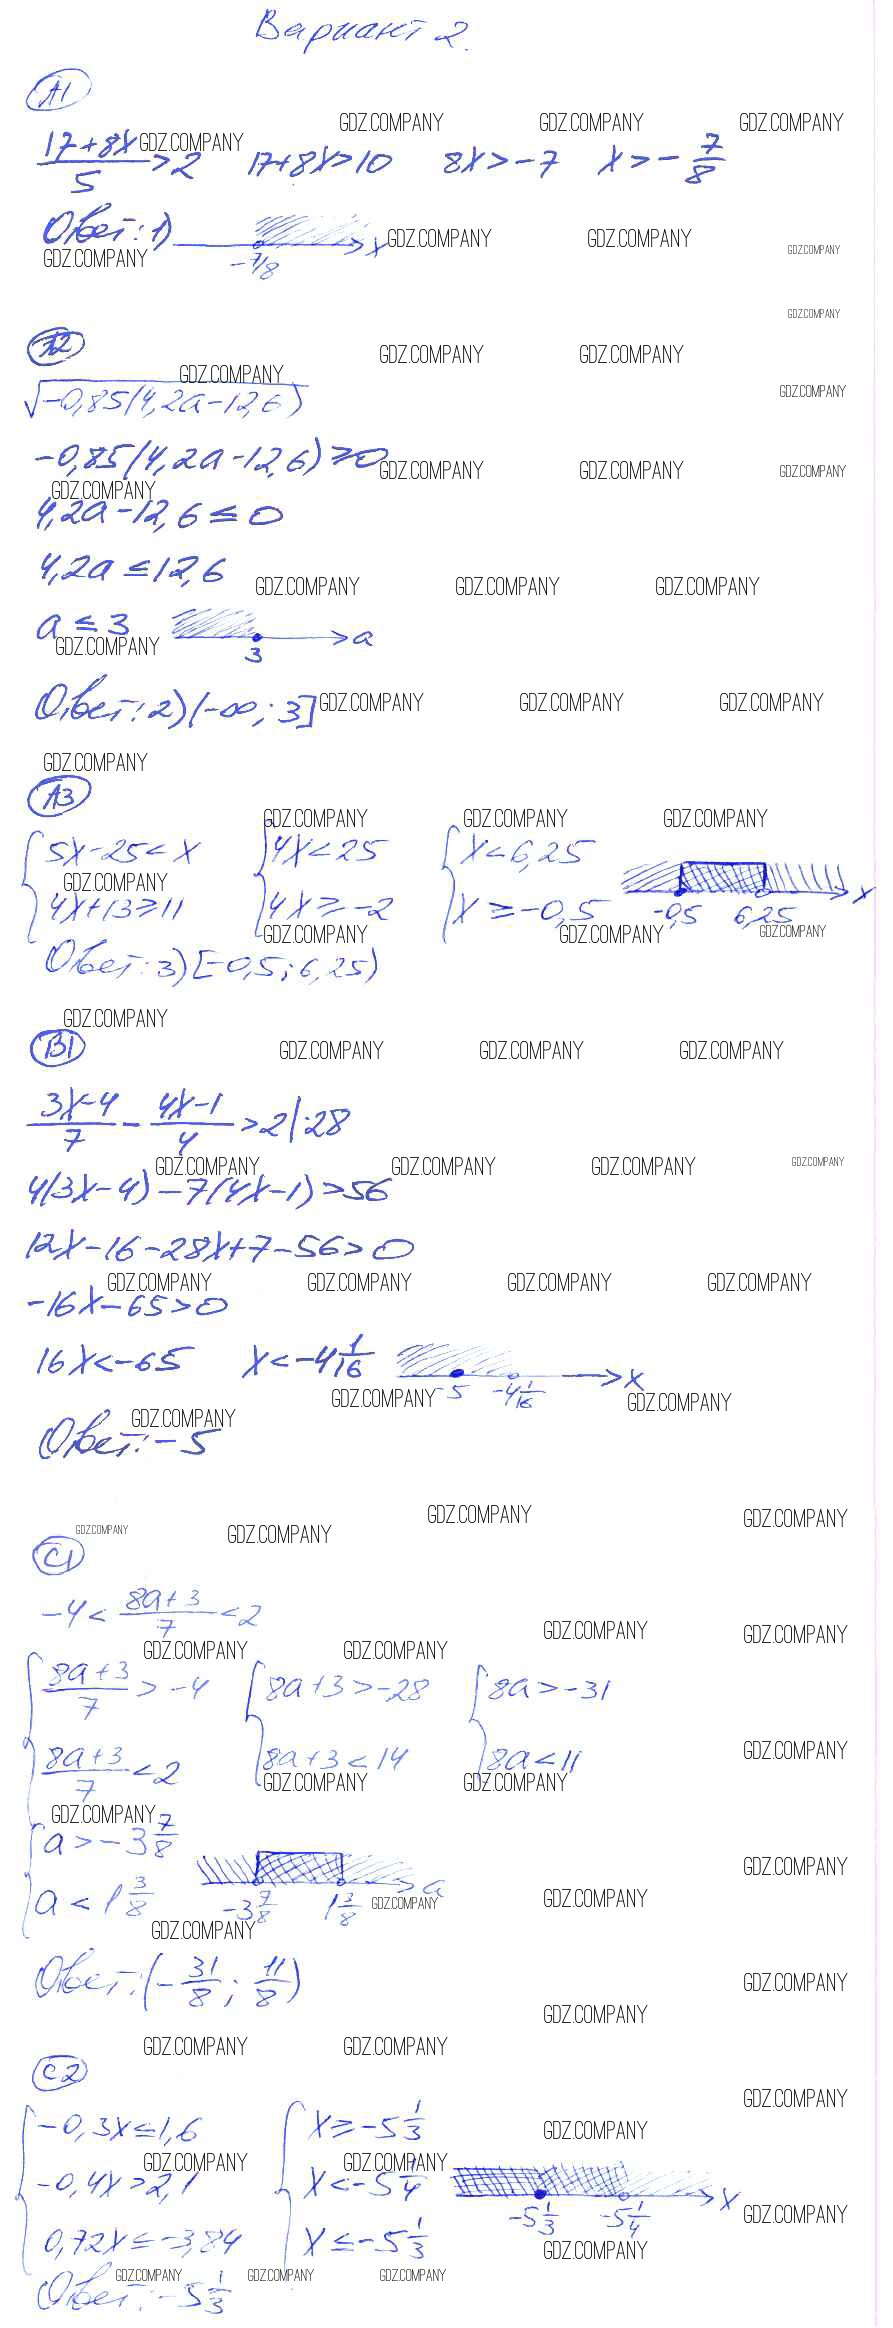 Вариант 2.
А1
(17+8x)/5 > 2   17+8x>10   8x>-7   x>-7/8
Ответ: 1)   -7/8   x
А2
√(-0,85(4,2a-12,6))
-0,85(4,2a-12,6)≥0
4,2a-12,6≤0
4,2a≤12,6
a≤3   3   a
Ответ: 2) (-∞; 3]
А3
{5x-25<x   {4x<25   {x<6,25
{4x+13≥11   {4x≥-2   {x≥-0,5   -0,5   6,25   x
Ответ: 3) [-0,5; 6,25)
В1
(3x-4)/7 - (4x-1)/4 > 2 |·28
4(3x-4)-7(4x-1)>56
12x-16-28x+7-56>0
-16x-65>0
16x<-65   x<-4 1/16   -5   -4 1/16   x
Ответ: -5
С1
-4 < (8a+3)/7 < 2
{(8a+3)/7 > -4   {8a+3>-28   {8a>-31
{(8a+3)/7 < 2   {8a+3<14   {8a<11
{a>-3 7/8
{a<1 3/8   -3 7/8   1 3/8   a
Ответ: (-31/8; 11/8)
С2
{-0,3x≤1,6   {x≥-5 1/3
{-0,4x>2,1   {x<-5 1/4   -5 1/3   -5 1/4   x
{0,72x≤-3,84   {x≤-5 1/3
Ответ: -5 1/3
GDZ.COMPANY